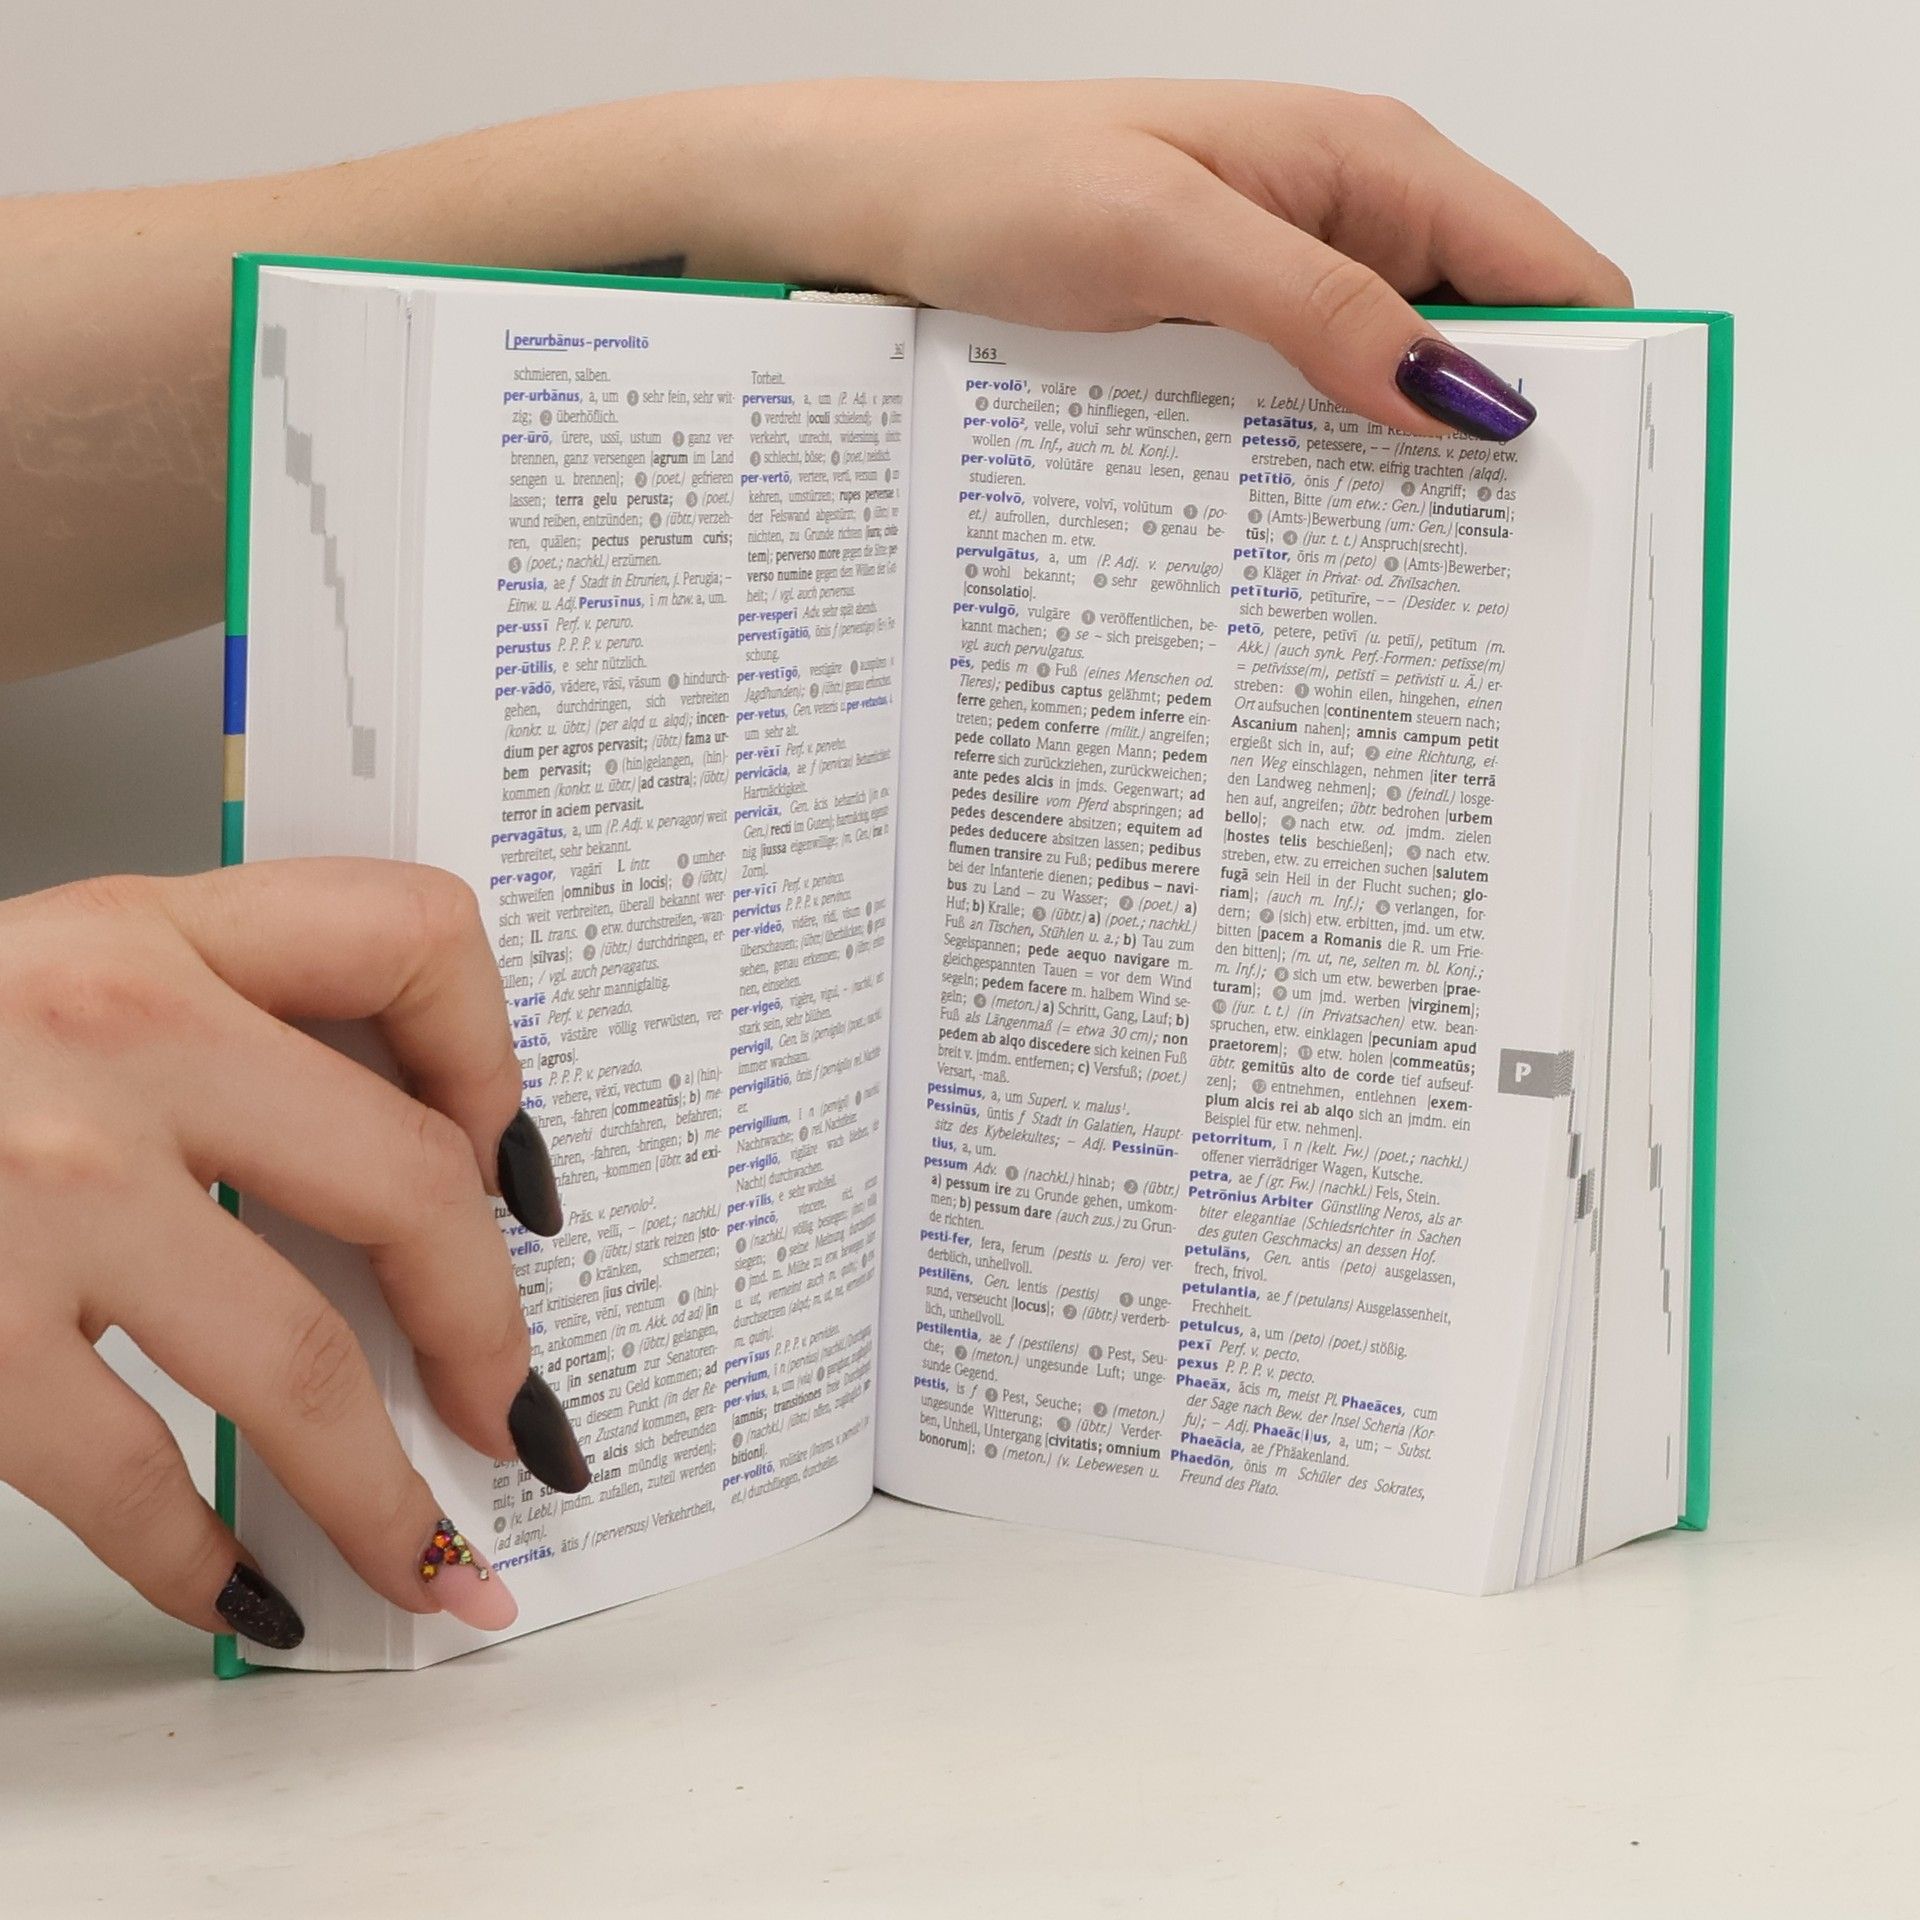 perurbānus–pervolitō
schmieren, salben.
per-urbānus, a, um ❶ sehr fein, sehr wit-
zig; ❷ überhöflich.
per-ūrō, ūrere, ussī, ustum ❶ ganz ver-
brennen, ganz versengen |agrum im Land
sengen u. brennen|; ❷ (poet.) gefrieren
lassen; terra gelu perusta; ❸ (poet.)
wund reiben, entzünden; ❹ (übtr.) verzeh-
ren, quälen; pectus perustum curis;
❺ (poet.; nachkl.) erzürnen.
Perusia, ae f Stadt in Etrurien, j. Perugia; –
Einw. u. Adj. Perusīnus, ī m bzw. a, um.
per-ussī Perf. v. peruro.
perustus P. P. P. v. peruro.
per-ūtilis, e sehr nützlich.
per-vādō, vādere, vāsī, vāsum ❶ hindurch-
gehen, durchdringen, sich verbreiten
(konkr. u. übtr.) (per alqd u. alqd); incen-
dium per agros pervasit; (übtr.) fama ur-
bem pervasit; ❷ (hin)gelangen, (hin)-
kommen (konkr. u. übtr.) |ad castra|; (übtr.)
terror in aciem pervasit.
pervagātus, a, um (P. Adj. v. pervagor) weit
verbreitet, sehr bekannt.
per-vagor, vagārī I. intr. ❶ umher-
schweifen |omnibus in locis|; ❷ (übtr.)
sich weit verbreiten, überall bekannt wer-
den; II. trans. ❶ etw. durchstreifen, -wan-
dern |silvas|; ❷ (übtr.) durchdringen, er-
füllen; / vgl. auch pervagatus.
-variē Adv. sehr mannigfaltig.
-vāsī Perf. v. pervado.
vāstō, vāstāre völlig verwüsten, ver-
en |agros|.
sus P. P. P. v. pervado.
ehō, vehere, vēxī, vectum ❶ a) (hin)-
ühren, -fahren |commeatūs|; b) me-
pervehi durchfahren, befahren;
ühren, -fahren, -bringen; b) me-
nfahren, -kommen |übtr. ad exi-
tus
Präs. v. pervolo².
vellō, vellere, vellī, – (poet.; nachkl.)
fest zupfen; ❷ (übtr.) stark reizen |sto-
hum|; ❸ kränken, schmerzen;
harf kritisieren |ius civile|.
niō, venīre, vēnī, ventum ❶ (hin)-
n, ankommen (in m. Akk. od ad) |in
; ad portam|; ❷ (übtr.) gelangen,
zu |in senatum zur Senatoren-
ummos zu Geld kommen; ad
zu diesem Punkt (in der Re-
en Zustand kommen, gera-
m alcis sich befreunden
ten |in telam mündig werden|;
mit; in su jmdm. zufallen, zuteil werden
❹ (v. Lebl.)
(ad alqm).
erversitās, ātis f (perversus) Verkehrtheit,
Torheit.
perversus, a, um (P. Adj. v. perverto)
❶ verdreht |oculi schielend|; ❷ (übtr.)
verkehrt, unrecht, widersinnig,
❸ schlecht, böse; ❹ (poet.) neidisch.
per-vertō, vertere, vertī, versum ❶ um
kehren, umstürzen; rupes perversae
der Felswand abgestürzt; ❷ (übtr.)
nichten, zu Grunde richten |iura; civita-
tem|; perverso more gegen die Sitte; per-
verso numine gegen den Willen der Gott-
heit; / vgl. auch perversus.
per-vesperī Adv. sehr spät abends.
pervestīgātiō, ōnis f (pervestigo) Er-
schung.
per-vestīgō, vestīgāre ❶ ausspüren
Jagdhunden); ❷ (übtr.) genau erforschen.
per-vetus, Gen. veteris u. per-vetustus, a,
um sehr alt.
per-vēxī Perf. v. perveho.
pervicācia, ae f (pervicax) Beharrlichkeit,
Hartnäckigkeit.
pervicāx, Gen. ācis beharrlich
Gen.) recti im Guten|; hartnäckig, eigensin-
nig |iussa eigenwillige; (m. Gen.) irae in
Zorn|.
per-vīcī Perf. v. pervinco.
pervictus P. P. P. v. pervinco.
per-videō, vidēre, vīdī, vīsum ❶
überschauen; (übtr.) überblicken; ❷
sehen, genau erkennen; ❸
nen, einsehen.
per-vigeō, vigēre, viguī, – (nachkl.)
stark sein, sehr blühen.
pervigil, Gen. ilis (pervigilo) (poet., nachkl.)
immer wachsam.
pervigilātiō, ōnis f (pervigilo) rel. Nachtfei-
er.
pervigilium, ī n (pervigil) ❶
Nachtwache; ❷ rel. Nachtfeier.
per-vigilō, vigilāre wach bleiben,
Nacht) durchwachen.
per-vīlis, e sehr wohlfeil.
per-vincō, vincere, vīcī,
❶ (nachkl.) völlig besiegen;
siegen; ❷ seine Meinung durchsetzen
❸ jmd. m. Mühe zu etw. bewegen
u. ut, verneint auch m. quin);
durchsetzen (alqd; m. ut, ne, verneint auch
m. quin|.
pervīsus P. P. P. v. pervideo.
pervium, ī n (pervius) (nachkl.) Durchgang.
per-vius, a, um (via)
|amnis; transitiones
❷ (nachkl.) (übtr.) offen, zugänglich
bitioni|.
per-volitō, volitāre (Intens. v. pervolo¹)
et.) durchfliegen, durcheilen.
363
per-volō¹, volāre ❶ (poet.) durchfliegen;
❷ durcheilen; ❸ hinfliegen, -eilen.
per-volō², velle, voluī sehr wünschen, gern
wollen (m. Inf., auch m. bl. Konj.).
per-volūtō, volūtāre genau lesen, genau
studieren.
per-volvō, volvere, volvī, volūtum ❶ (po-
et.) aufrollen, durchlesen; ❷ genau be-
kannt machen m. etw.
pervulgātus, a, um (P. Adj. v. pervulgo)
❶ wohl bekannt; ❷ sehr gewöhnlich
|consolatio|.
per-vulgō, vulgāre ❶ veröffentlichen, be-
kannt machen; ❷ se – sich preisgeben; –
vgl. auch pervulgatus.
pēs, pedis m ❶ Fuß (eines Menschen od.
Tieres); pedibus captus gelähmt; pedem
ferre gehen, kommen; pedem inferre ein-
treten; pedem conferre (milit.) angreifen;
pede collato Mann gegen Mann; pedem
referre sich zurückziehen, zurückweichen;
ante pedes alcis in jmds. Gegenwart; ad
pedes desilire vom Pferd abspringen; ad
pedes descendere absitzen; equitem ad
pedes deducere absitzen lassen; pedibus
flumen transire zu Fuß; pedibus merere
bei der Infanterie dienen; pedibus – navi-
bus zu Land – zu Wasser; ❷ (poet.) a)
Huf; b) Kralle; ❸ (übtr.) a) (poet.; nachkl.)
Fuß an Tischen, Stühlen u. a.; b) Tau zum
Segelspannen; pede aequo navigare m.
gleichgespannten Tauen = vor dem Wind
segeln; pedem facere m. halbem Wind se-
geln; ❹ (meton.) a) Schritt, Gang, Lauf; b)
Fuß als Längenmaß (= etwa 30 cm); non
pedem ab alqo discedere sich keinen Fuß
breit v. jmdm. entfernen; c) Versfuß; (poet.)
Versart, -maß.
pessimus, a, um Superl. v. malus¹.
Pessinūs, ūntis f Stadt in Galatien, Haupt-
sitz des Kybelekultes; – Adj. Pessinūn-
tius, a, um.
pessum Adv. ❶ (nachkl.) hinab; ❷ (übtr.)
a) pessum ire zu Grunde gehen, umkom-
men; b) pessum dare (auch zus.) zu Grun-
de richten.
pesti-fer, fera, ferum (pestis u. fero) ver-
derblich, unheilvoll.
pestilēns, Gen. lentis (pestis) ❶ unge-
sund, verseucht |locus|; ❷ (übtr.) verderb-
lich, unheilvoll.
pestilentia, ae f (pestilens) ❶ Pest, Seu-
che; ❷ (meton.) ungesunde Luft; unge-
sunde Gegend.
pestis, is f ❶ Pest, Seuche; ❷ (meton.)
ungesunde Witterung; ❸ (übtr.) Verder-
ben, Unheil, Untergang |civitatis; omnium
bonorum|; ❹ (meton.) (v. Lebewesen u.
v. Lebl.)
petasātus, a, um im
petessō, petessere, – – (Intens. v. peto) etw.
erstreben, nach etw. eifrig trachten (alqd).
petītiō, ōnis f (peto) ❶ Angriff; ❷ das
Bitten, Bitte (um etw.: Gen.) |indutiarum|;
❸ (Amts-)Bewerbung (um: Gen.) |consula-
tūs|; ❹ (jur. t. t.) Anspruch(srecht).
petītor, ōris m (peto) ❶ (Amts-)Bewerber;
❷ Kläger in Privat- od. Zivilsachen.
petīturiō, petīturīre, – – (Desider. v. peto)
sich bewerben wollen.
petō, petere, petīvī (u. petiī), petītum (m.
Akk.) (auch synk. Perf.-Formen: petīsse(m)
= petīvisse(m), petīstī = petīvistī u. Ä.) er-
streben: ❶ wohin eilen, hingehen, einen
Ort aufsuchen |continentem steuern nach;
Ascanium nahen|; amnis campum petit
ergießt sich in, auf; ❷ eine Richtung, ei-
nen Weg einschlagen, nehmen |iter terrā
den Landweg nehmen|; ❸ (feindl.) losge-
hen auf, angreifen; übtr. bedrohen |urbem
bello|; ❹ nach etw. od. jmdm. zielen
|hostes telis beschießen|; ❺ nach etw.
streben, etw. zu erreichen suchen |salutem
fugā sein Heil in der Flucht suchen; glo-
riam|; (auch m. Inf.); ❻ verlangen, for-
dern; ❼ (sich) etw. erbitten, jmd. um etw.
bitten |pacem a Romanis die R. um Frie-
den bitten|; (m. ut, ne, selten m. bl. Konj.;
m. Inf.); ❽ sich um etw. bewerben |prae-
turam|; ❾ um jmd. werben |virginem|;
❿ (jur. t. t.) (in Privatsachen) etw. bean-
spruchen, etw. einklagen |pecuniam apud
praetorem|; ⓫ etw. holen |commeatūs;
übtr. gemitūs alto de corde tief aufseuf-
zen|; ⓬ entnehmen, entlehnen |exem-
plum alcis rei ab alqo sich an jmdm. ein
Beispiel für etw. nehmen|.
petorritum, ī n (kelt. Fw.) (poet.; nachkl.)
offener vierrädriger Wagen, Kutsche.
petra, ae f (gr. Fw.) (nachkl.) Fels, Stein.
Petrōnius Arbiter Günstling Neros, als ar
biter elegantiae (Schiedsrichter in Sachen
des guten Geschmacks) an dessen Hof.
petulāns, Gen. antis (peto) ausgelassen,
frech, frivol.
petulantia, ae f (petulans) Ausgelassenheit,
Frechheit.
petulcus, a, um (peto) (poet.) stößig.
pexī Perf. v. pecto.
pexus P. P. P. v. pecto.
Phaeāx, ācis m, meist Pl. Phaeāces, cum
der Sage nach Bew. der Insel Scheria (Kor
fu); – Adj. Phaeāc(i)us, a, um; – Subst.
Phaeācia, ae f Phäakenland.
Phaedōn, ōnis m Schüler des Sokrates,
Freund des Plato.
P